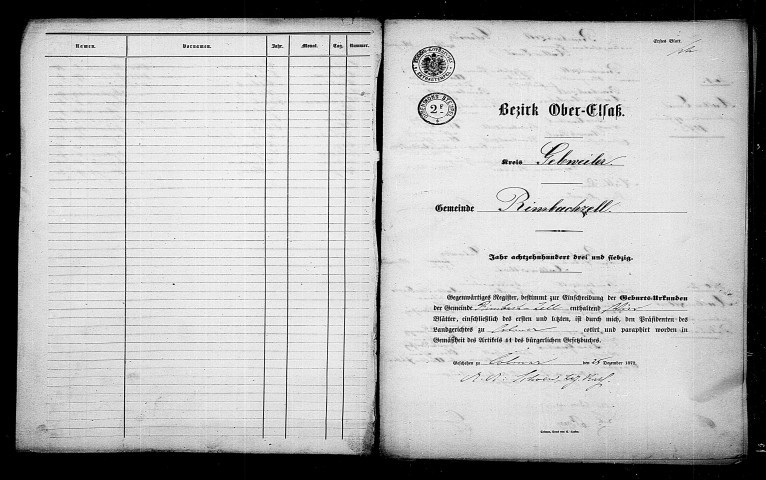 Namen. Vornamen. Jahr. Monat. Tag. Nummer.
Erstes Blatt.
2 F
Bezirk Ober-Elsaß.
Kreis Gebweiler.
Gemeinde Rimbachzell.
Jahr achtzehnhundert drei und siebzig.
Gegenwärtiges Register, bestimmt zur Einschreibung der Geburts-Urkunden
der Gemeinde Rimbachzell enthaltend
Blätter, einschließlich des ersten und letzten, ist durch mich, den Präsidenten des
Landgerichtes zu Colmar cotirt und paraphirt worden in
Gemäßheit des Artikels 41 des bürgerlichen Gesetzbuches.
Geschehen zu Colmar den 25 Dezember 1872